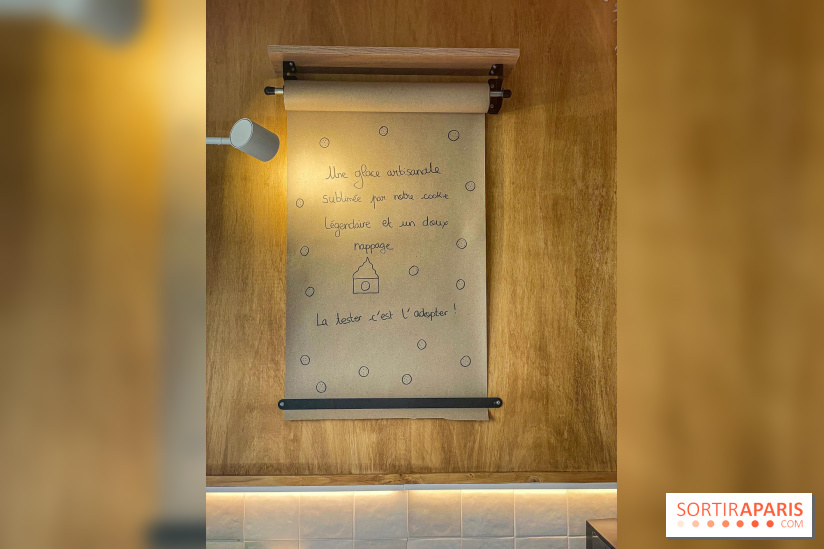 Une glace artisanale
sublimée par notre cookie
légendaire et un doux
nappage
La tester c'est l'adopter !
SORTIRAPARIS
.COM